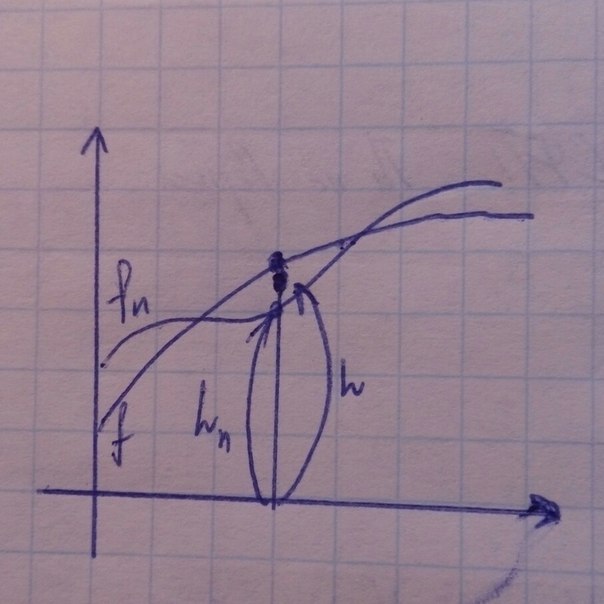 fn
f
hn
h